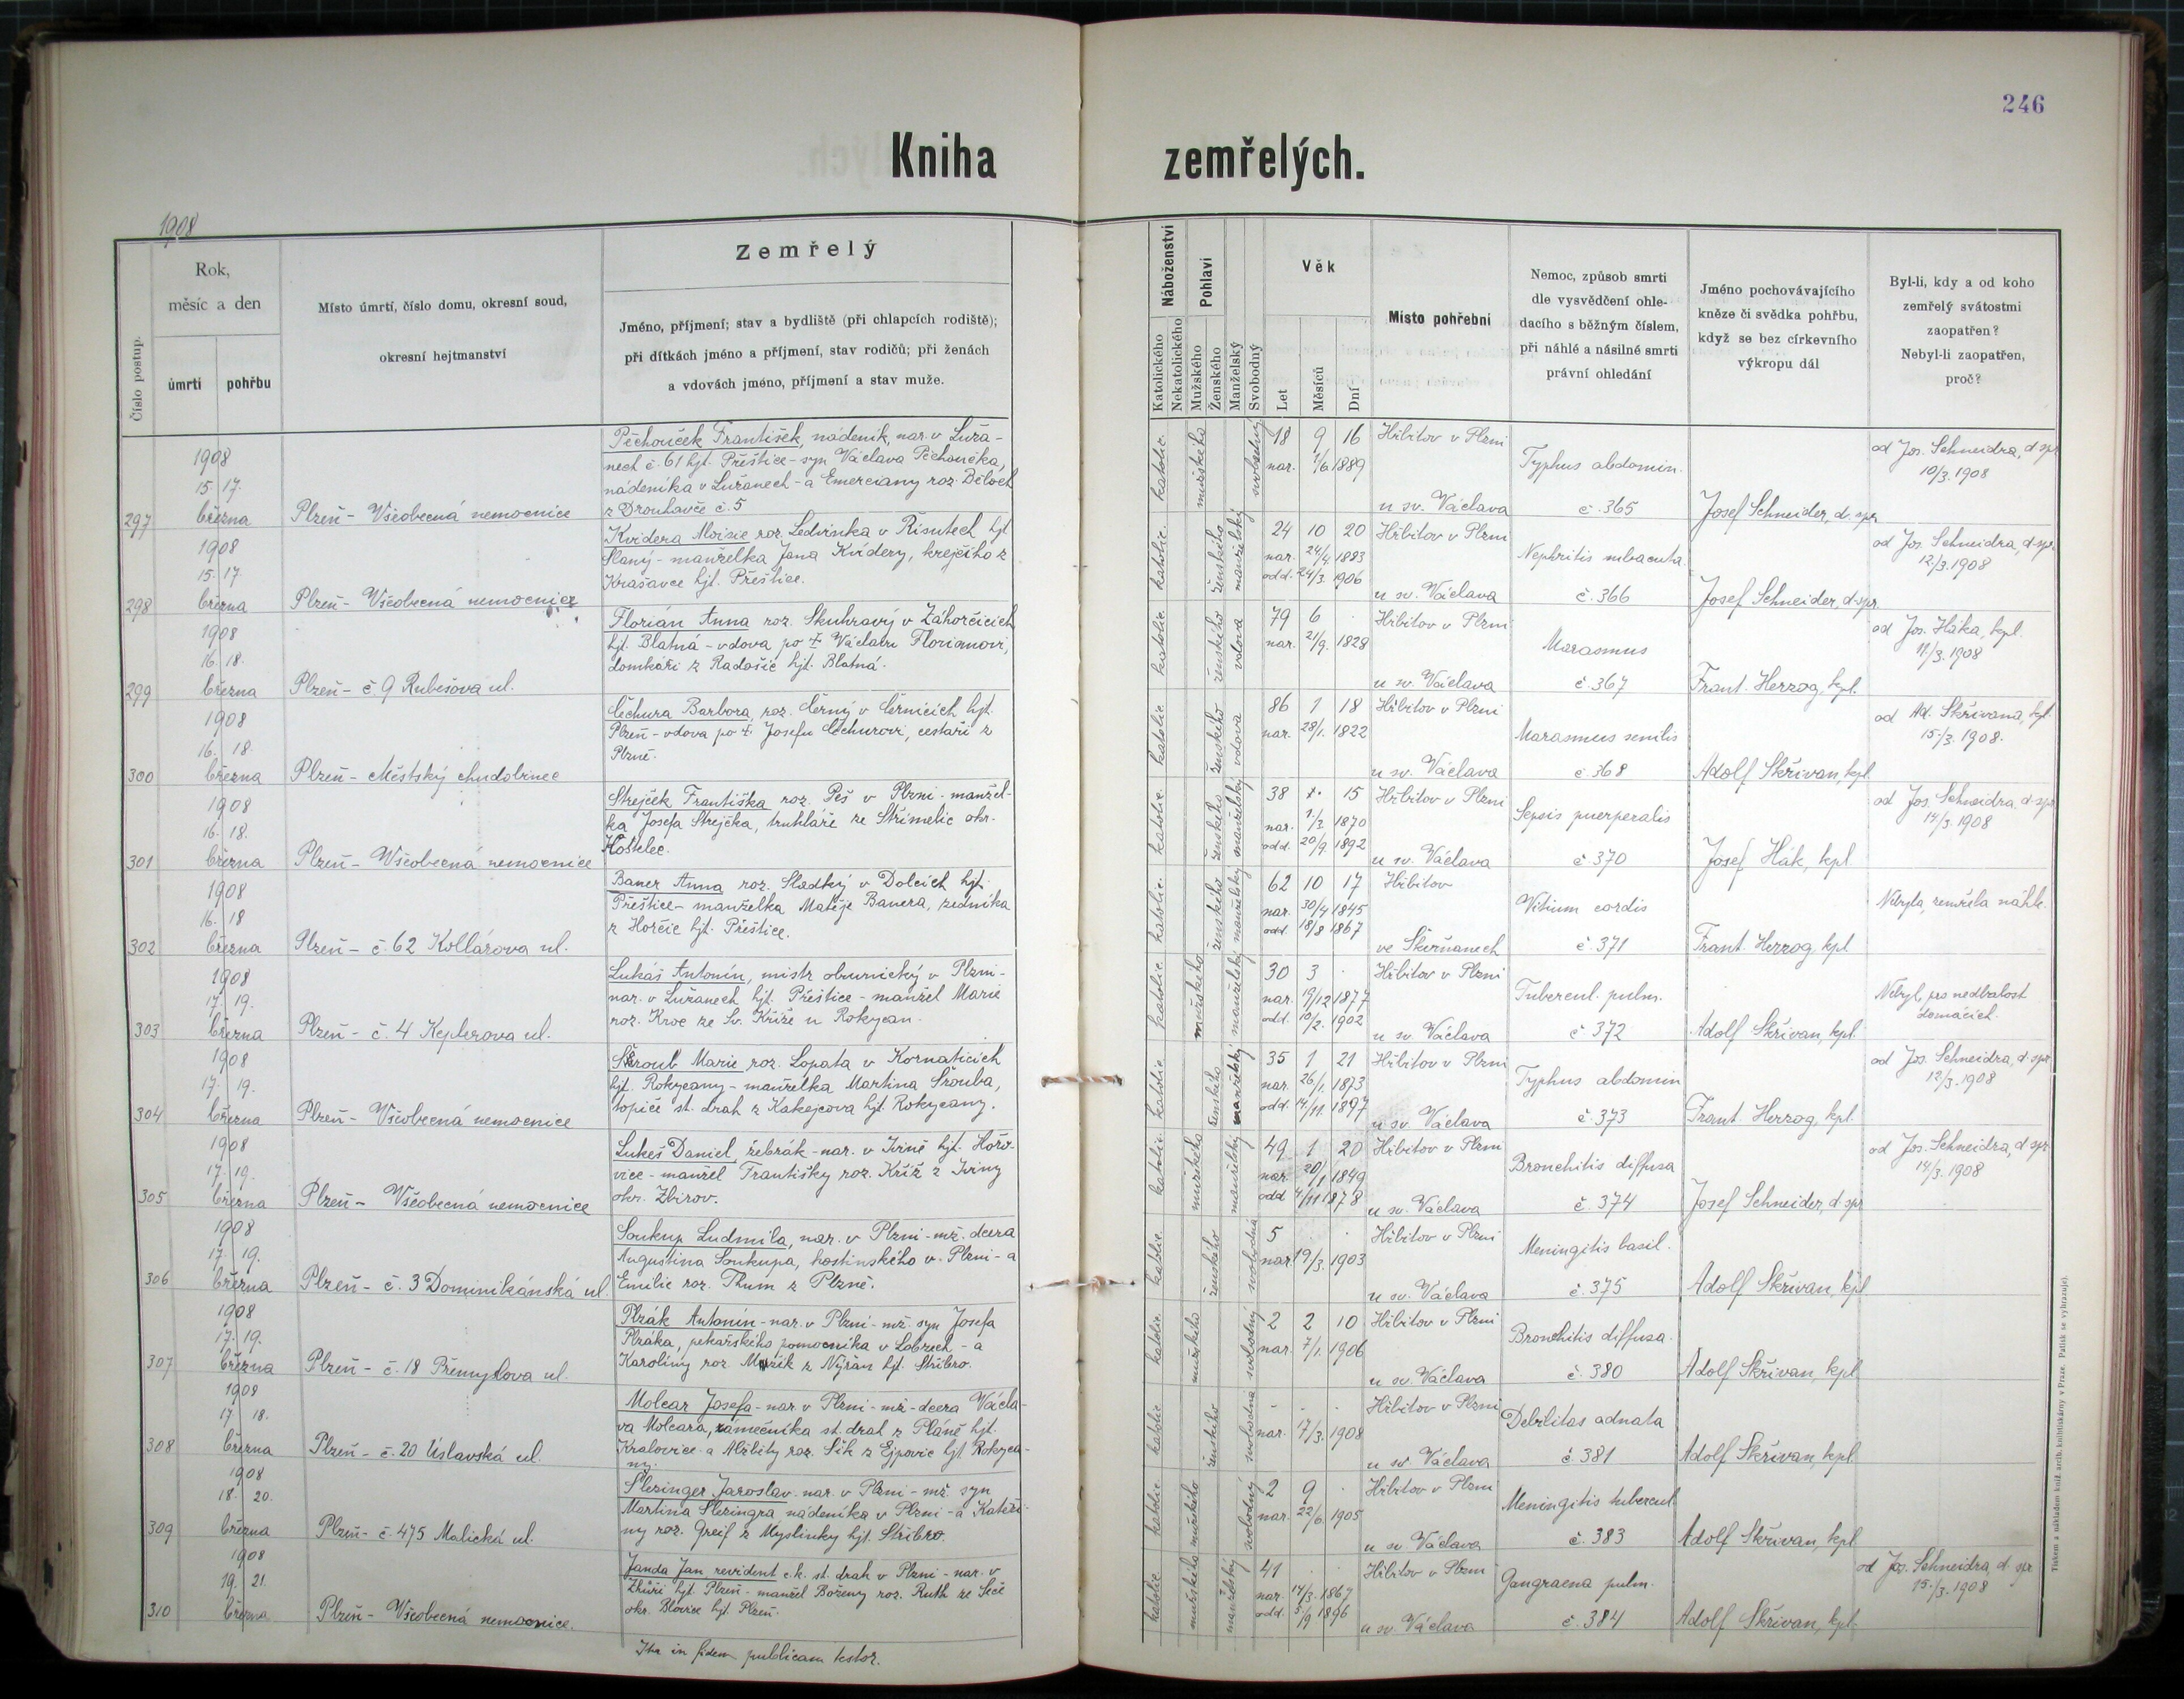 246
Kniha zemřelých.
1908
Číslo postup.
Rok,
měsíc a den
úmrtí
pohřbu
Místo úmrtí, číslo domu, okresní soud,
okresní hejtmanství
Zemřelý
Jméno, příjmení; stav a bydliště (při chlapcích rodiště);
při dítkách jméno a příjmení, stav rodičů; při ženách
a vdovách jméno, příjmení a stav muže.
Náboženství
Katolického
Nekatolického
Pohlaví
Mužského
Ženského
Manželský
Svobodný
Věk
Let
Měsíců
Dní
Místo pohřební
Nemoc, způsob smrti
dle vysvědčení ohle-
dacího s běžným číslem,
při náhlé a násilné smrti
právní ohledání
Jméno pochovávajícího
kněze či svědka pohřbu,
když se bez církevního
výkropu dál
Byl-li, kdy a od koho
zemřelý svátostmi
zaopatřen?
Nebyl-li zaopatřen,
proč?
297
1908
15. 17.
března
Plzeň - Všeobecná nemocnice
Pěchouček František, nádeník, nar. v Luža-
nech č. 61 hjt. Přeštice - syn Václava Pěchoučka,
nádeníka v Lužanech - a Emerciany roz. Běloch
z Drouhavče č. 5
katolic. mužského svobodný
18 9 16
nar. 1/6. 1889
Hřbitov v Plzni
u sv. Václava
Typhus abdomin.
č. 365
Josef Schneider, d. spr.
od Jos. Schneidra, d. spr.
10/3. 1908
298
1908
15. 17.
března
Plzeň - Všeobecná nemocnice
Kvidera Aloisie roz. Ledvinka v Řisutech hjt.
Slaný - manželka Jana Kvidery, krejčího z
Krašovce hjt. Přeštice.
katolic. ženského manželský
24 10 20
nar. 24/4. 1883
odd. 24/3. 1906
Hřbitov v Plzni
u sv. Václava
Nephritis subacuta.
č. 366
Josef Schneider, d. spr.
od Jos. Schneidra, d. spr.
12/3. 1908
299
1908
16. 18.
března
Plzeň - č. 9 Rubešova ul.
Florián Anna roz. Skuhravý v Záhorčicích
hjt. Blatná - vdova po † Václavu Florianovi,
domkáři z Radošic hjt. Blatná.
katolic. ženského vdova
79 6 .
nar. 21/9. 1828
Hřbitov v Plzni
u sv. Václava
Marasmus
č. 367
Frant. Herzog, kpl.
od Jos. Háka, kpl.
11/3. 1908
300
1908
16. 18.
března
Plzeň - Městský chudobinec
Čechura Barbora, roz. Černý v Černicích hjt.
Plzeň - vdova po † Josefu Čechurovi, cestáři z
Plzně.
katolic. ženského vdova
86 1 18
nar. 28/1. 1822
Hřbitov v Plzni
u sv. Václava
Marasmus senilis
č. 368
Adolf Skřivan, kpl.
od Ad. Skřivana, kpl.
15./3. 1908.
301
1908
16. 18.
března
Plzeň - Všeobecná nemocnice
Strejček Františka roz. Peš v Plzni - manžel-
ka Josefa Strejčka, truhláře ze Střimelic okr.
Kostelec.
katolic. ženského manželský
38 . 15
nar. 1/3. 1870
odd. 20/9. 1892
Hřbitov v Plzni
u sv. Václava
Sepsis puerperalis
č. 370
Josef Hák, kpl
od Jos. Schneidra, d. spr.
14/3. 1908
302
1908
16. 18
března
Plzeň - č. 62 Kollárova ul.
Bauer Anna roz. Sladký v Dolcích hjt.
Přeštice - manželka Matěje Bauera, zedníka
z Horčic hjt. Přeštice.
katolic. ženského manželský
62 10 17
nar. 30/4 1845
odd. 18/8 1867
Hřbitov
ve Skvrňanech
Vitium cordis
č. 371
Frant. Herzog, kpl
Nebyla, zemřela náhle.
303
1908
17. 19.
března
Plzeň - č. 4 Keplerova ul.
Lukáš Antonín, mistr obuvnický v Plzni -
nar. v Lužanech hjt. Přeštice - manžel Marie
roz. Kroc ze Sv. Kříže u Rokycan.
katolic. mužského manželský
30 3 .
nar. 19/12 1877
odd. 10/2. 1902
Hřbitov v Plzni
u sv. Václava
Tubercul. pulm.
č 372
Adolf Skřivan, kpl.
Nebyl, pro nedbalost
domácích.
304
1908
17. 19.
března
Plzeň - Všeobecná nemocnice
Šroub Marie roz. Lopata v Kornaticích
hjt. Rokycany - manželka Martina Šrouba,
topiče st. drah z Kakejcova hjt. Rokycany.
katolic. ženského manželský
35 1 21
nar. 26/1. 1873
odd. 14/11. 1897
Hřbitov v Plzni
u sv. Václava
Typhus abdomin
č. 373
Frant. Herzog, kpl.
od Jos. Schneidra, d. spr.
12/3. 1908
305
1908
17. 19.
března
Plzeň - Všeobecná nemocnice
Lukeš Daniel, žebrák - nar. v Jivině hjt. Hořo-
vice - manžel Františky roz. Kříž z Jiviny
okr. Zbirov.
katolic. mužského manželský
49 1 20
nar. 20/1 1849
odd 4/11 1878
Hřbitov v Plzni
u sv. Václava
Bronchitis diffusa
č. 374
Josef Schneider, d. spr
od Jos. Schneidra, d spr
14/3. 1908
306
1908
17. 19.
března
Plzeň - č. 3 Dominikánská ul.
Soukup Ludmila, nar. v Plzni - mž. dcera
Augustina Soukupa, hostinského v Plzni - a
Emilie roz. Thum z Plzně.
katolic. ženského svobodná
5 . .
nar. 19/3. 1903
Hřbitov v Plzni
u sv. Václava
Meningitis basil.
č. 375
Adolf Skřivan, kpl
307
1908
17. 19.
března
Plzeň - č. 18 Přemyslova ul.
Plzák Antonín - nar. v Plzni - mž. syn Josefa
Plzáka, pekařského pomocníka v Lobzech - a
Karoliny roz. z Nýřan hjt. Stříbro.
katolic. mužského svobodný
2 2 10
nar. 7/1. 1906
Hřbitov v Plzni
u sv. Václava
Bronchitis diffusa.
č. 380
Adolf Skřivan, kpl
308
1908
17. 18.
března
Plzeň - č. 20 Úslavská ul.
Molcar Josefa - nar. v Plzni - mž - dcera Václa-
va Molcara, zámečníka st. drah z Pláně hjt.
Kralovice - a Alžběty roz. Šik z Ejpovic hjt. Rokyca-
ny.
katolic. ženského svobodná
- . .
nar. 17/3. 1908
Hřbitov v Plzni
u sv Václava
Debilitas adnata
č 381
Adolf Skřivan, kpl
309
1908
18. 20.
března
Plzeň - č. 475 Malická ul.
Slezinger Jaroslav - nar. v Plzni - mž. syn
Martina Slezingra nádeníka v Plzni - a Kateři-
ny roz. Greif z Myslinky hjt. Stříbro.
katolic mužského svobodný
2 9 .
nar. 22/6. 1905
Hřbitov v Plzni
u sv. Václava
Meningitis tubercul.
č. 383
Adolf Skřivan, kpl
310
1908
19. 21.
března
Plzeň - Všeobecná nemocnice.
Janda Jan revident c.k. st. drah v Plzni - nar. v
Zhůři hjt. Plzeň - manžel Boženy roz. Ruth ze Seče
okr. Blovice hjt. Plzeň.
katolic. mužského manželský
41 . .
nar. 14/3. 1867
odd. 5/9 1896
Hřbitov v Plzni
u sv. Václava
Gangraena pulm.
č. 384
Adolf Skřivan, kpl.
od Jos. Schneidra, d. spr
15./3. 1908
Ita in fidem publicam testor.
Tiskem a nákladem kníž. arcib. knihtiskárny v Praze. (Patisk se vyhrazuje).